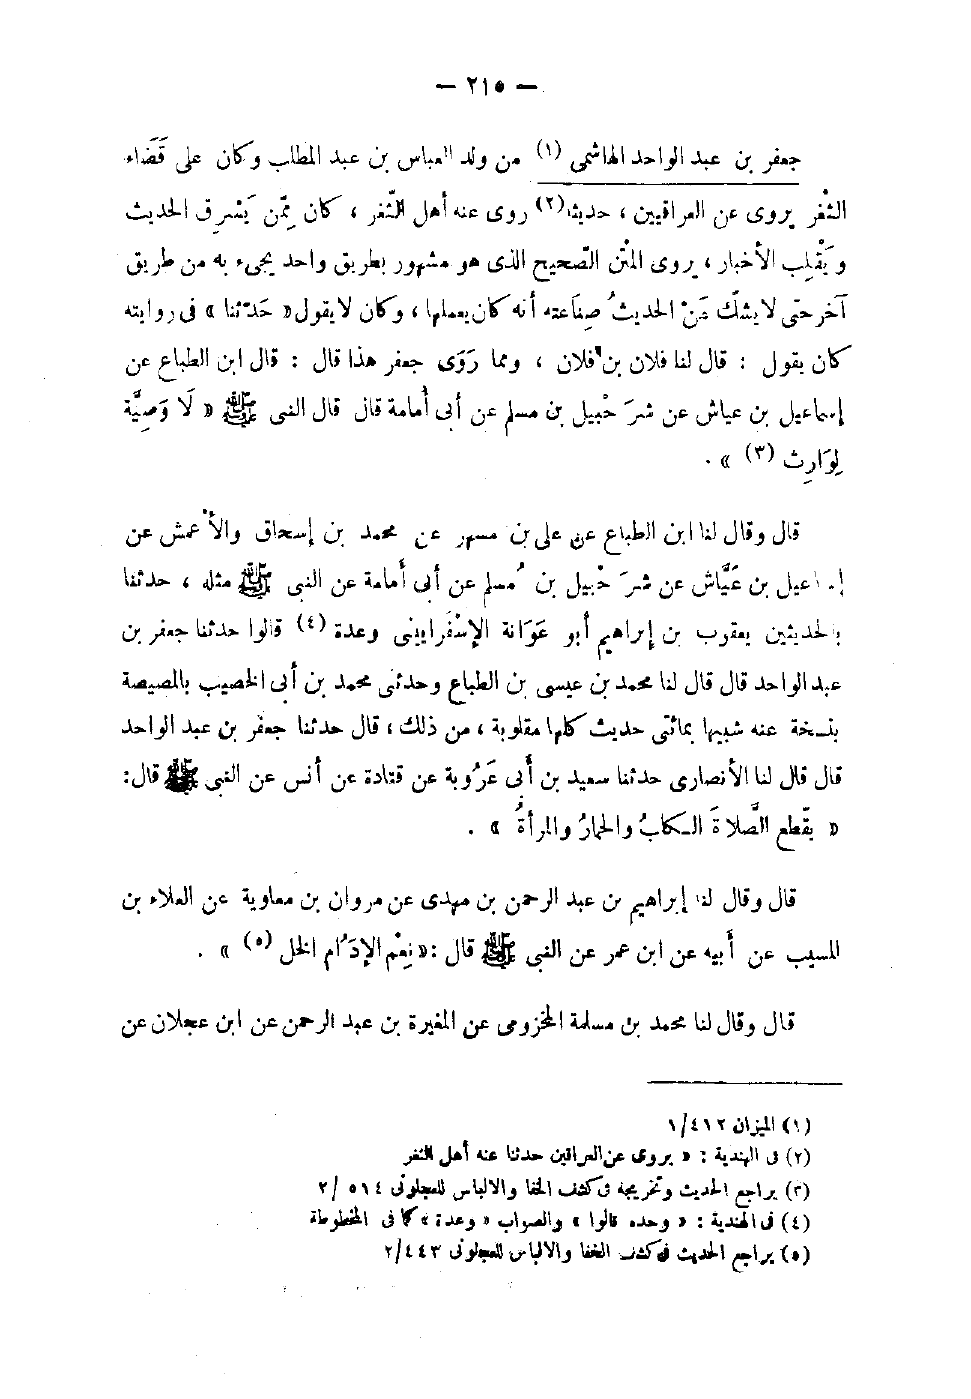 — ٢١٥ —
جعفر بن عبد الواحد الهاشمى (١) من ولد العباس بن عبد المطلب وكان على قَضَاء
الثغْر يروى عن العراقيين ، حديثه (٢) روى عنه أهل الثَّغر ، كان مِمَّن يَسْرق الحديث
وَيَقْلِب الأخبار ، يروى المتْن الصَّحيح الذى هو مشهور بطريق واحد يجىء به من طريق
آخر حتى لا يشكّ مَنْ الحديثُ صِنَاعته أنه كان يعملها ، وكان لا يقول « حَدّثنا » فى روايته
كان يقول : قال لنا فلان بن فلان ، ومما رَوَى جعفر هذا قال : قال ابن الطباع عن
إسماعيل بن عياش عن شرَحْبيل بن مسلم عن أبى أُمامة قال قال النبى ﷺ « لَا وَصِيَّة
لِوَارِث (٣) » .
قال وقال لنا ابن الطباع عن على بن مسهر عن محمد بن إسحاق والأعمش عن
إسماعيل بن عَيَّاش عن شرَحْبيل بن مُسلم عن أبى أُمامة عن النبى ﷺ مثله ، حدثنا
بالحديثين يعقوب بن إبراهيم أبو عَوَانة الإسْفَرايينى وعدة (٤) قالوا حدثنا جعفر بن
عبد الواحد قال قال لنا محمد بن عيسى بن الطباع وحدثنى محمد بن أبى الخصيب بالمصيصة
بنسخة عنه شبيها بمائتى حديث كلها مقلوبة ، من ذلك ، قال حدثنا جعفر بن عبد الواحد
قال قال لنا الأنصارى حدثنا سعيد بن أبى عَرُوبة عن قتادة عن أنس عن النبى ﷺ قال :
« يقْطع الصَّلاةَ الكلبُ والحمارُ والمرأةُ » .
قال وقال لنا إبراهيم بن عبد الرحمن بن مهدى عن مروان بن معاوية عن العلاء بن
المسيب عن أبيه عن ابن عمر عن النبى ﷺ قال : « نِعْم الإدَام الخل (٥) » .
قال وقال لنا محمد بن مسلمة المخزومى عن المغيرة بن عبد الرحمن عن ابن عجلان عن
(١) الميزان ١/٤١٢
(٢) فى الهندية : « يروى عن العراقين حدثنا عنه أهل الثغر
(٣) يراجع الحديث وتخريجه فى كشف الخفا والالباس للعجلونى ٥١٤ /٢
(٤) فى الهندية : « وحده قالوا » والصواب « وعدة » كما فى المخطوطة
(٥) يراجع الحديث فى كشف الخفا والالباس للعجلونى ٢/٤٤٣